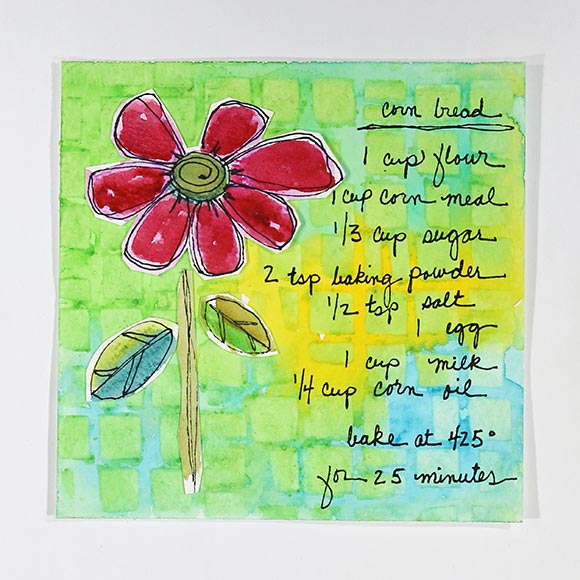 corn bread
1 cup flour
1 cup corn meal
1/3 cup sugar
2 tsp baking powder
1/2 tsp salt
1 egg
1 cup milk
1/4 cup corn oil
bake at 425°
for 25 minutes